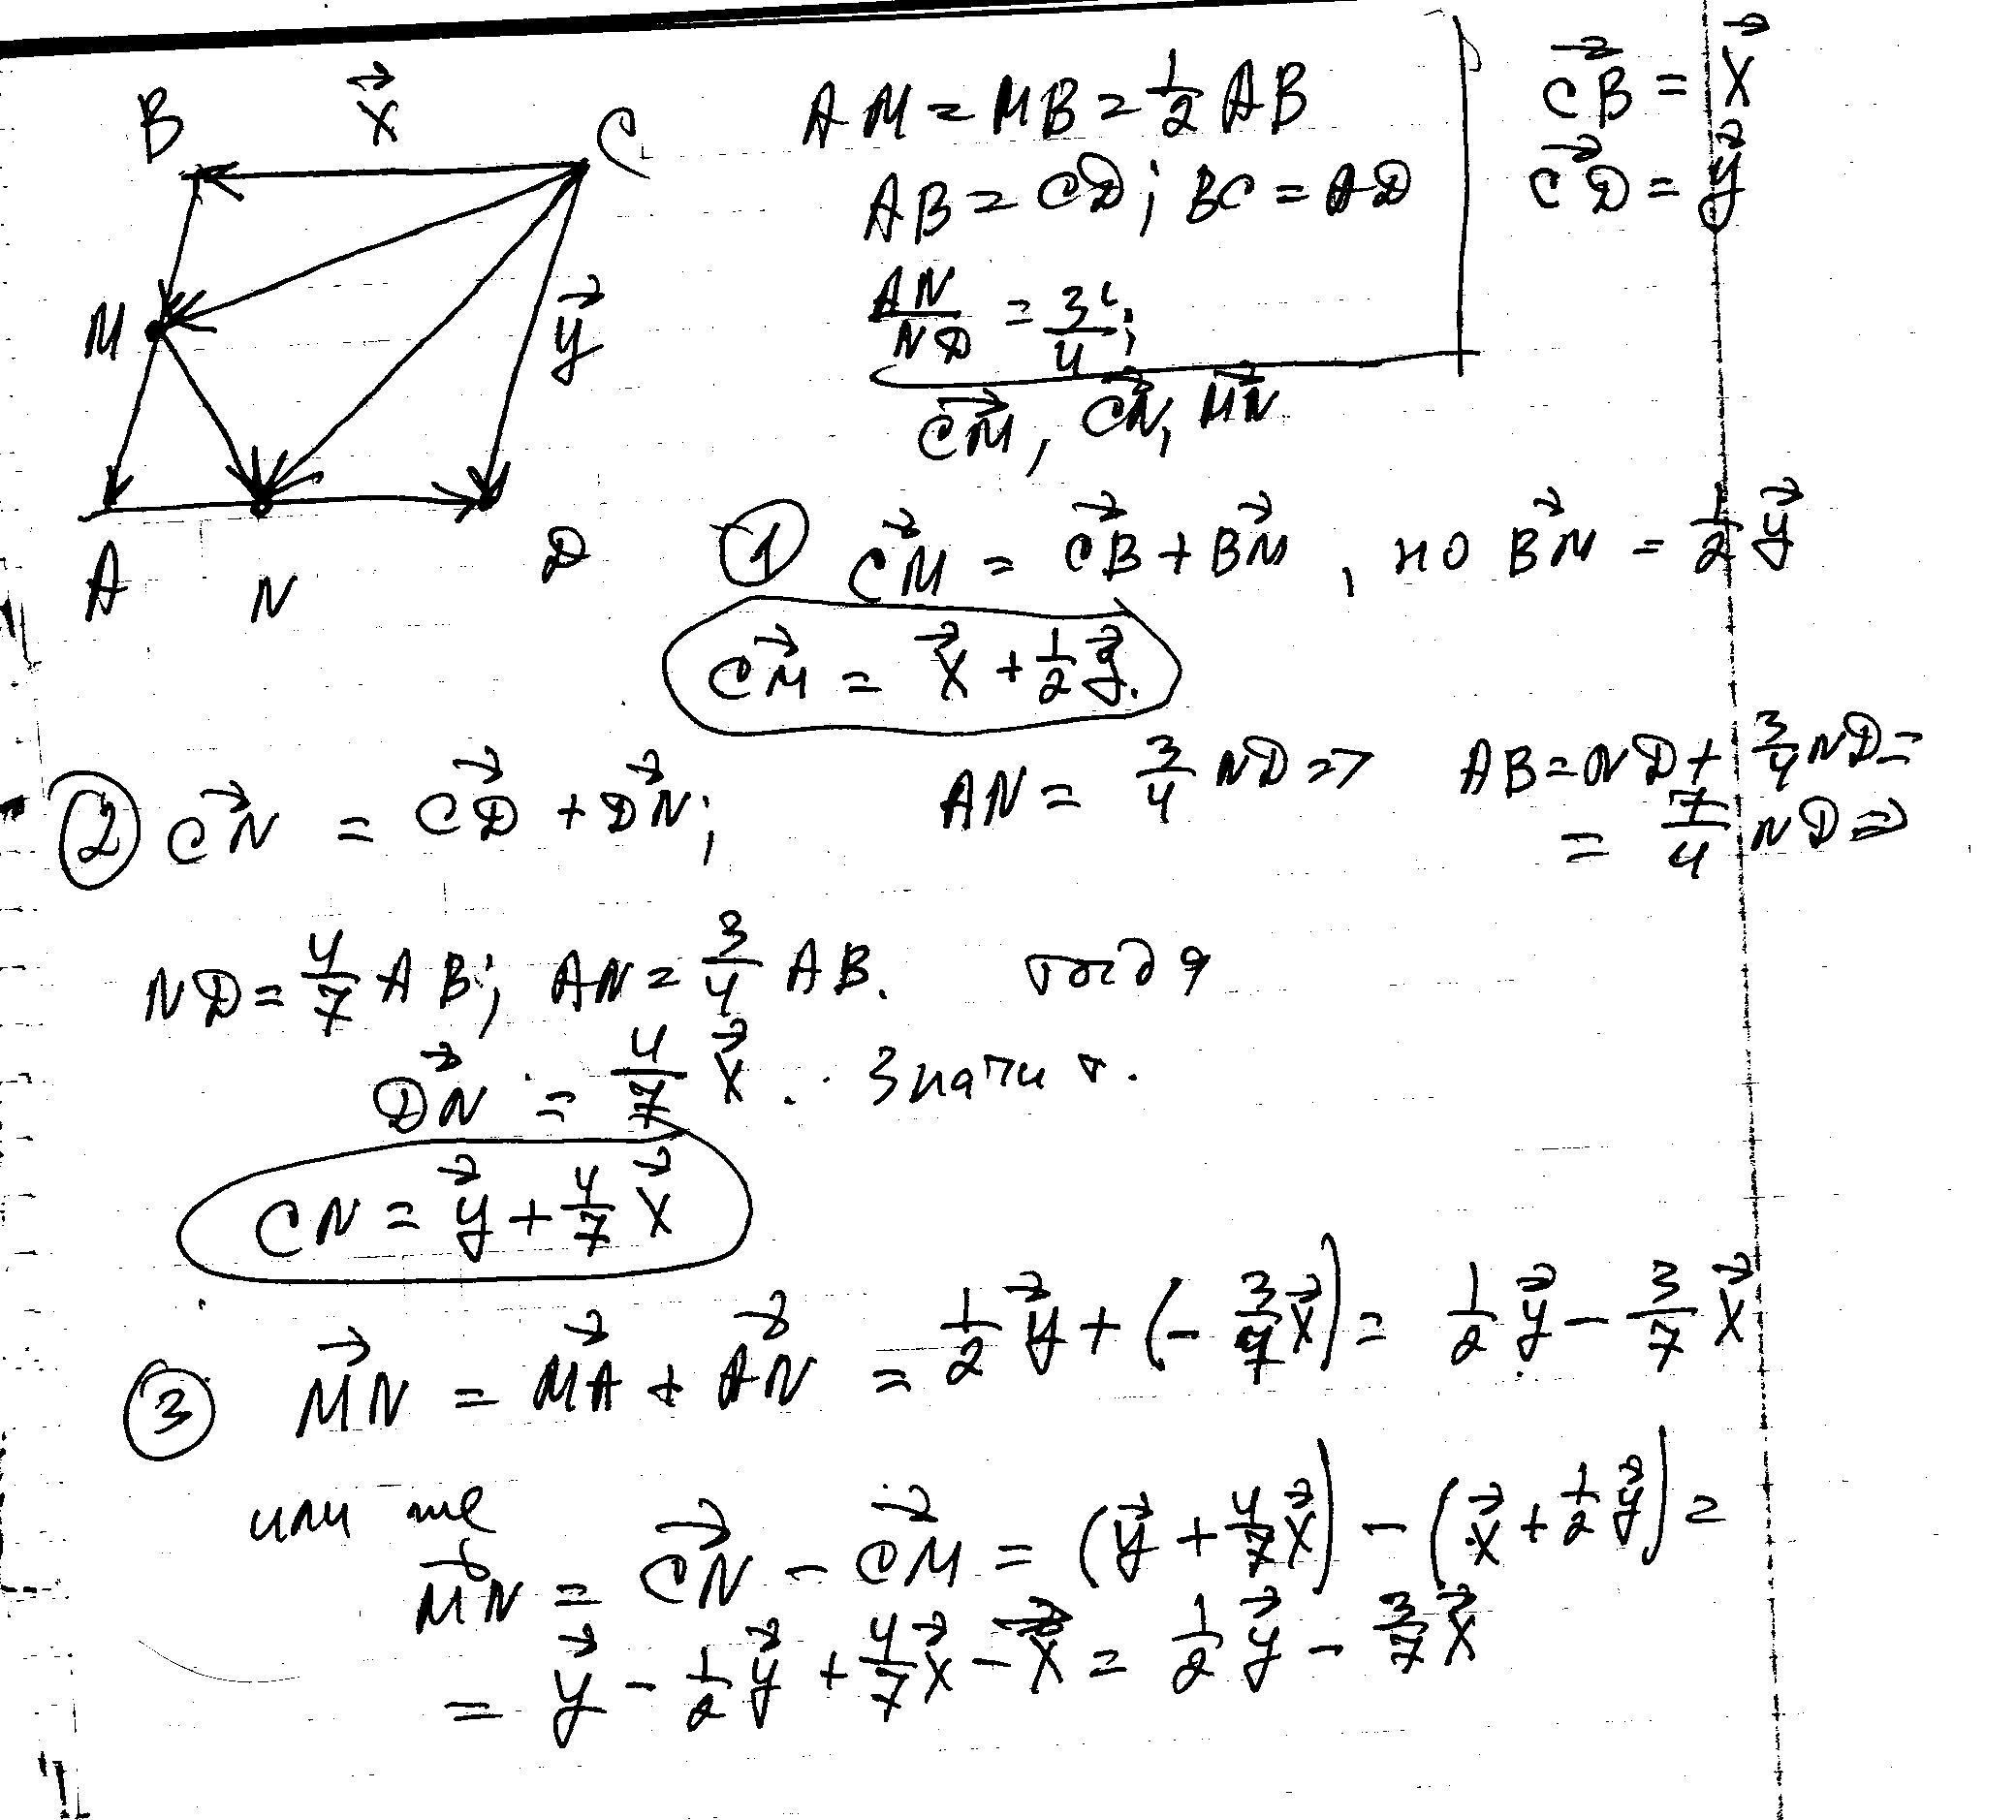 B
x⃗
C
M
y⃗
A
N
D
AM = MB = 1/2 AB
AB = CD; BC = AD
AN/ND = 3/4;
CM⃗, CN⃗, MN⃗
CB⃗ = x⃗
CD⃗ = y⃗
① CM⃗ = CB⃗ + BM⃗, но BM⃗ = 1/2 y⃗
CM⃗ = x⃗ + 1/2 y⃗.
② CN⃗ = CD⃗ + DN⃗; AN = 3/4 ND => AB = ND + 3/4 ND =
= 7/4 ND =>
ND = 4/7 AB; AN = 3/4 AB. тогда
DN⃗ = 4/7 x⃗. Значит.
CN = y⃗ + 4/7 x⃗
③ MN⃗ = MA⃗ + AN⃗ = 1/2 y⃗ + (- 3/7 x⃗) = 1/2 y⃗ - 3/7 x⃗
или же
MN⃗ = CN⃗ - CM⃗ = (y⃗ + 4/7 x⃗) - (x⃗ + 1/2 y⃗) =
= y⃗ - 1/2 y⃗ + 4/7 x⃗ - x⃗ = 1/2 y⃗ - 3/7 x⃗